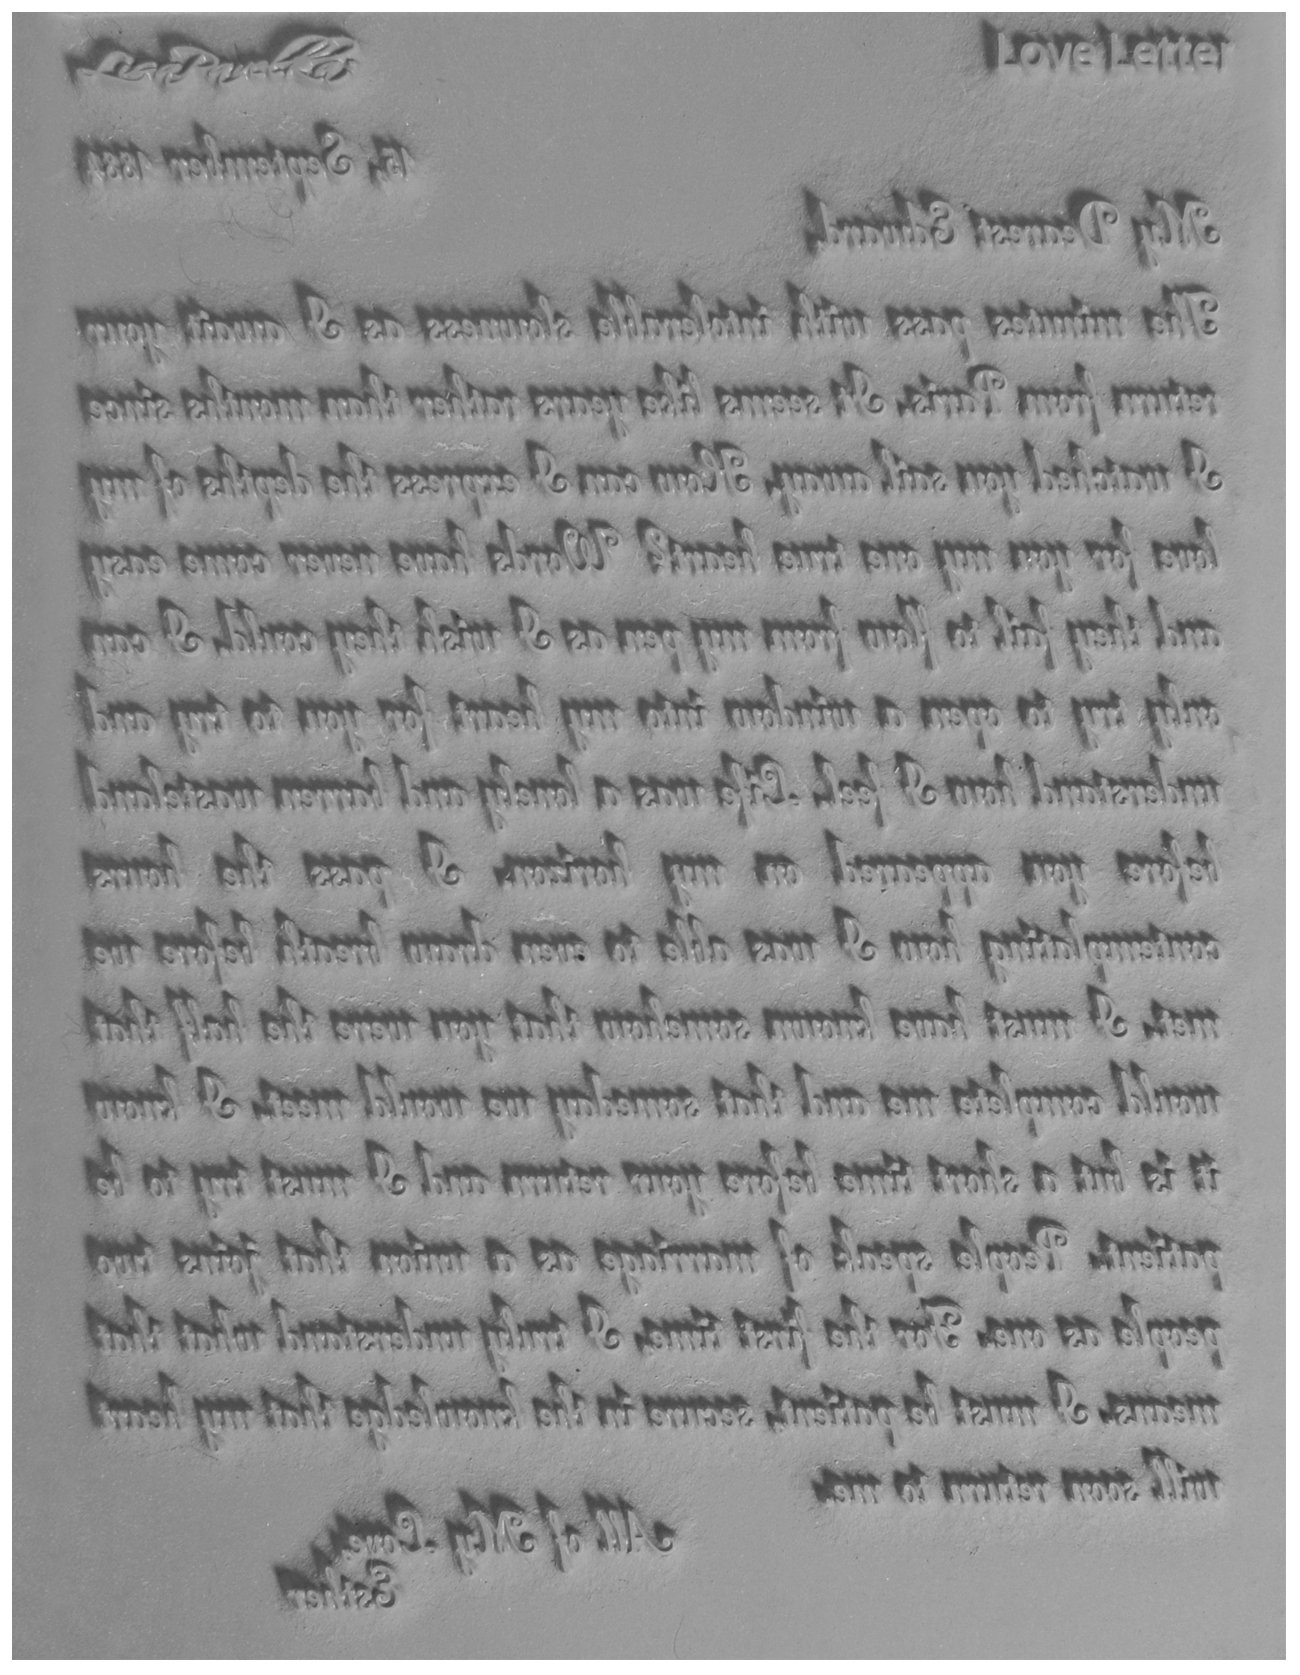 Love Letter
15, September 1884
My Dearest Edward,
The minutes pass with intolerable slowness as I await your
return from Paris. It seems like years rather than months since
I watched you sail away. How can I express the depths of my
love for you my one true heart? Words have never come easy
and they fail to flow from my pen as I wish they could. I can
only try to open a window into my heart for you to try and
understand how I feel. Life was a lonely and barren wasteland
before you appeared on my horizon. I pass the hours
contemplating how I was able to even draw breath before we
met. I must have known somehow that you were the half that
would complete me and that someday we would meet. I know
it is but a short time before your return and I must try to be
patient. People speak of marriage as a union that joins two
people as one. For the first time, I truly understand what that
means. I must be patient, secure in the knowledge that my heart
will soon return to me.
All of My Love,
Esther